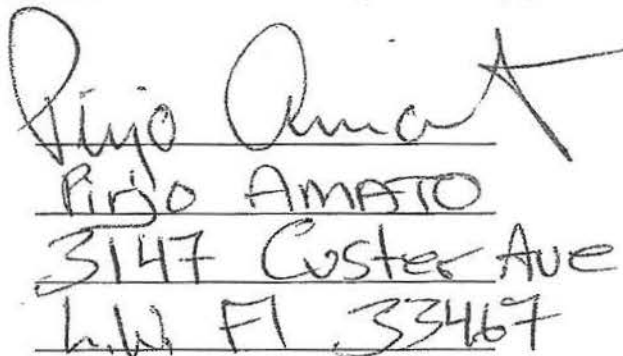 Pirjo Amato
Pirjo AMATO
3147 Custer Ave
L.W. Fl 33467